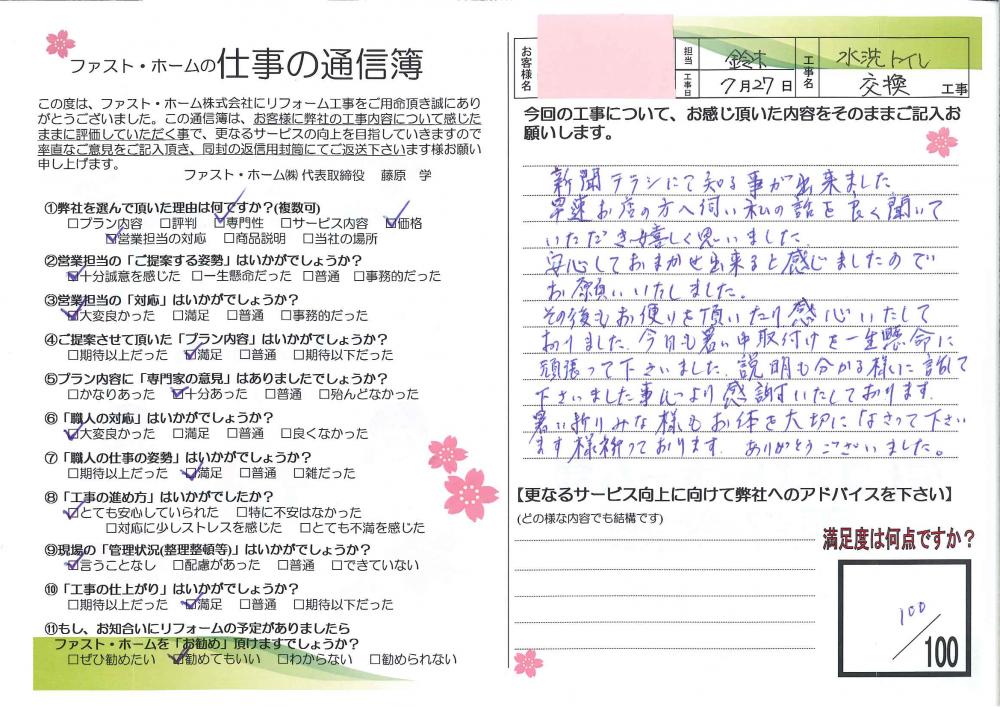 ファスト・ホームの仕事の通信簿
この度は、ファスト・ホーム株式会社にリフォーム工事をご用命頂き誠にあり
がとうございました。この通信簿は、お客様に弊社の工事内容について感じた
ままに評価していただく事で、更なるサービスの向上を目指していきますので
率直なご意見をご記入頂き、同封の返信用封筒にてご返送下さいます様お願い
申し上げます。
ファスト・ホーム㈱ 代表取締役 藤原 学
①弊社を選んで頂いた理由は何ですか?(複数可)
□プラン内容 □評判 ☑専門性 □サービス内容 ☑価格
☑営業担当の対応 □商品説明 □当社の場所
②営業担当の「ご提案する姿勢」はいかがでしょうか?
☑十分誠意を感じた □一生懸命だった □普通 □事務的だった
③営業担当の「対応」はいかがでしょうか?
☑大変良かった □満足 □普通 □事務的だった
④ご提案させて頂いた「プラン内容」はいかがでしょうか?
□期待以上だった ☑満足 □普通 □期待以下だった
⑤プラン内容に「専門家の意見」はありましたでしょうか?
□かなりあった ☑十分あった □普通 □殆んどなかった
⑥「職人の対応」はいかがでしょうか?
☑大変良かった □満足 □普通 □良くなかった
⑦「職人の仕事の姿勢」はいかがでしょうか?
□期待以上だった ☑満足 □普通 □雑だった
⑧「工事の進め方」はいかがでしたか?
☑とても安心していられた □特に不安はなかった
□対応に少しストレスを感じた □とても不満を感じた
⑨現場の「管理状況(整理整頓等)」はいかがでしょうか?
☑言うことなし □配慮があった □普通 □できていない
⑩「工事の仕上がり」はいかがでしょうか?
□期待以上だった ☑満足 □普通 □期待以下だった
⑪もし、お知合いにリフォームの予定がありましたら
ファスト・ホームを「お勧め」頂けますでしょうか?
□ぜひ勧めたい ☑勧めてもいい □わからない □勧められない
お客様名
担当 鈴木
工事日 7月27日
工事名 水洗トイレ
交換 工事
今回の工事について、お感じ頂いた内容をそのままご記入お
願いします。
新聞チラシにて知る事が出来ました
早速お店の方へ伺い私の話を良く聞いて
いただき嬉しく思いました。
安心しておまかせ出来ると感じましたので
お願いいたしました。
その後もお便りを頂いたり感心いたして
おりました。今日も暑い中取付けを一生懸命に
頑張って下さいました。説明も分かる様に話して
下さいました事心より感謝いたしております。
暑い折りみな様もお体を大切になさって下さい
ます様祈っております。ありがとうございました。
【更なるサービス向上に向けて弊社へのアドバイスを下さい】
(どの様な内容でも結構です)
満足度は何点ですか?
100
/100